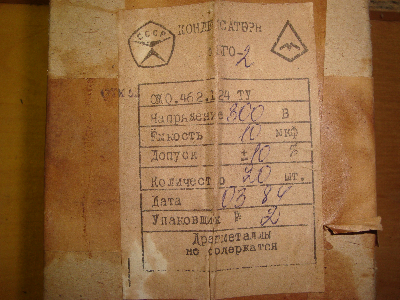 СССР
КОНДЕНСАТОРЫ
МБГО-2
ОЖ0.462.124 ТУ
Напряжение 300 В
Емкость 10 мкф
Допуск ±10 %
Количество 20 шт.
Дата 03 84
Упаковщик № 2
Драгметаллы
не содержатся